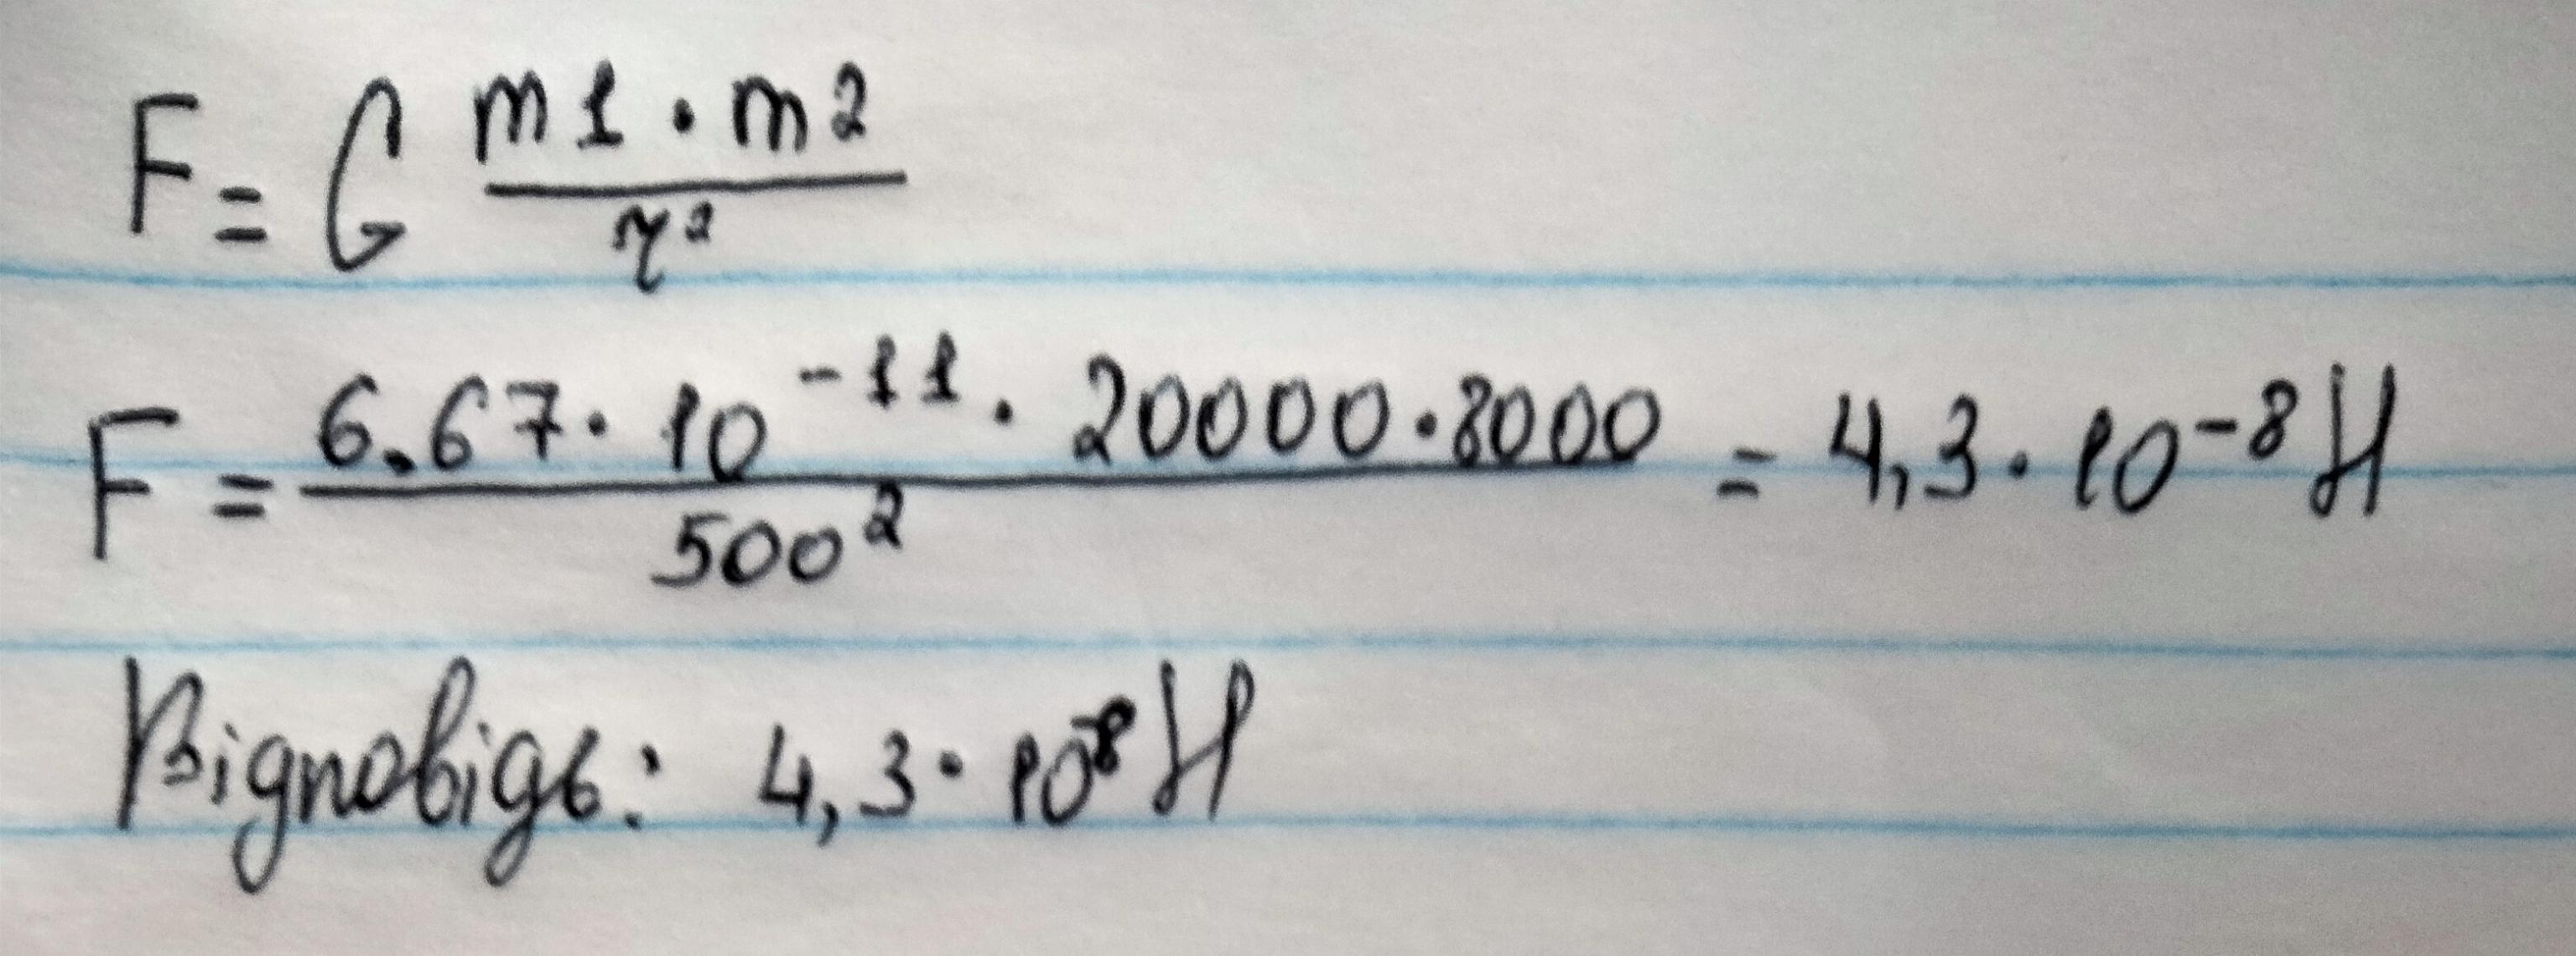 F = G m1 · m2 / r²
F = 6.67 · 10⁻¹¹ · 20000 · 8000 / 500² = 4,3 · 10⁻⁸ Н
Відповідь: 4,3 · 10⁻⁸ Н